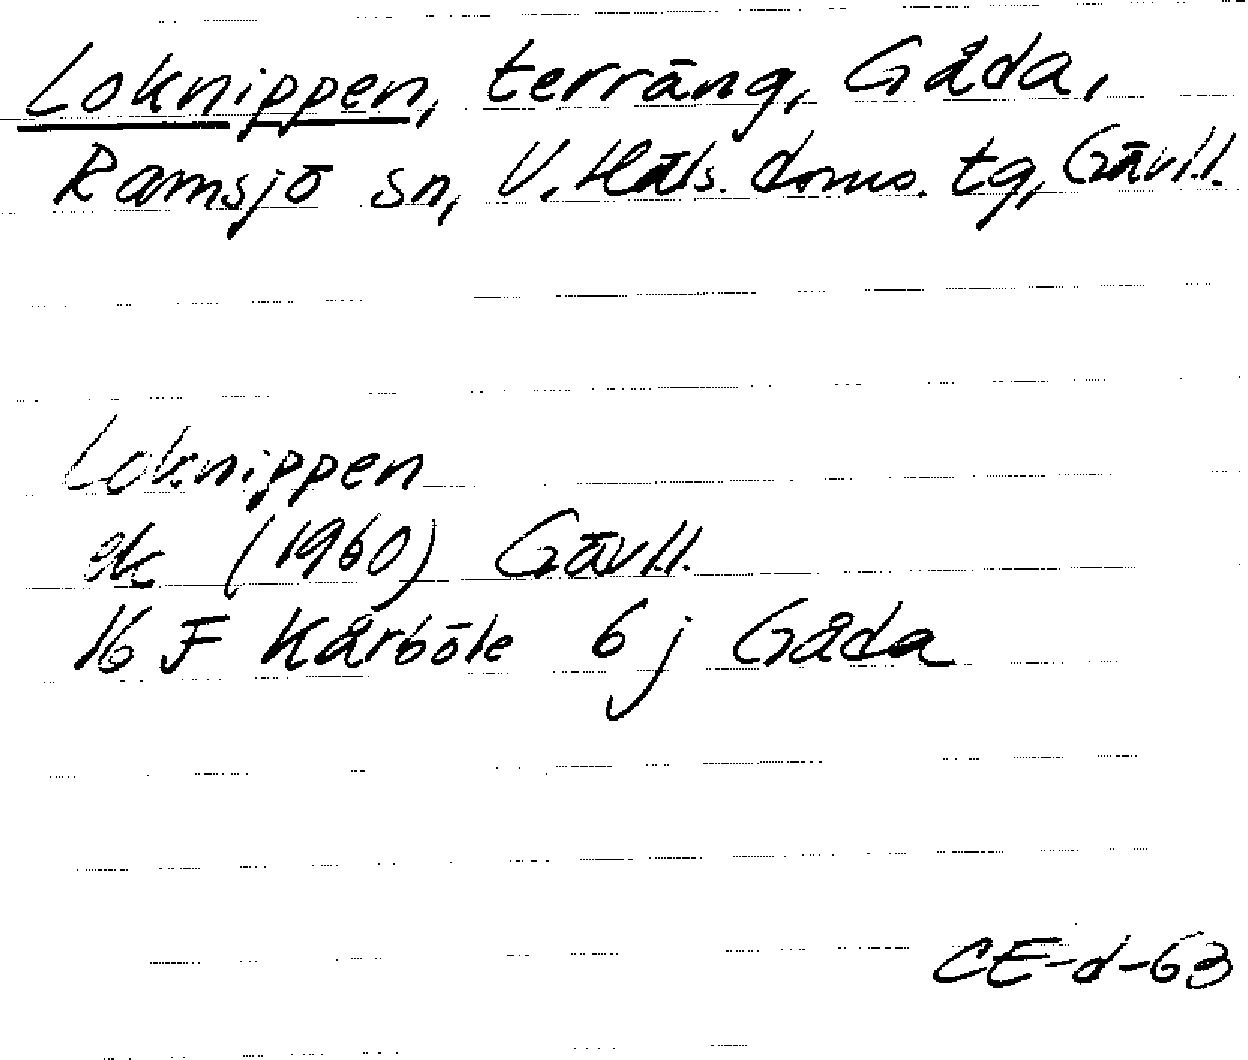 Loknippen, terräng, Gåda,
Ramsjö sn, V. Häls. doms. tg, Gävll.
Loknippen
ek (1960) Gävll.
16 F Kårböle 6 j Gåda
CE-d-63